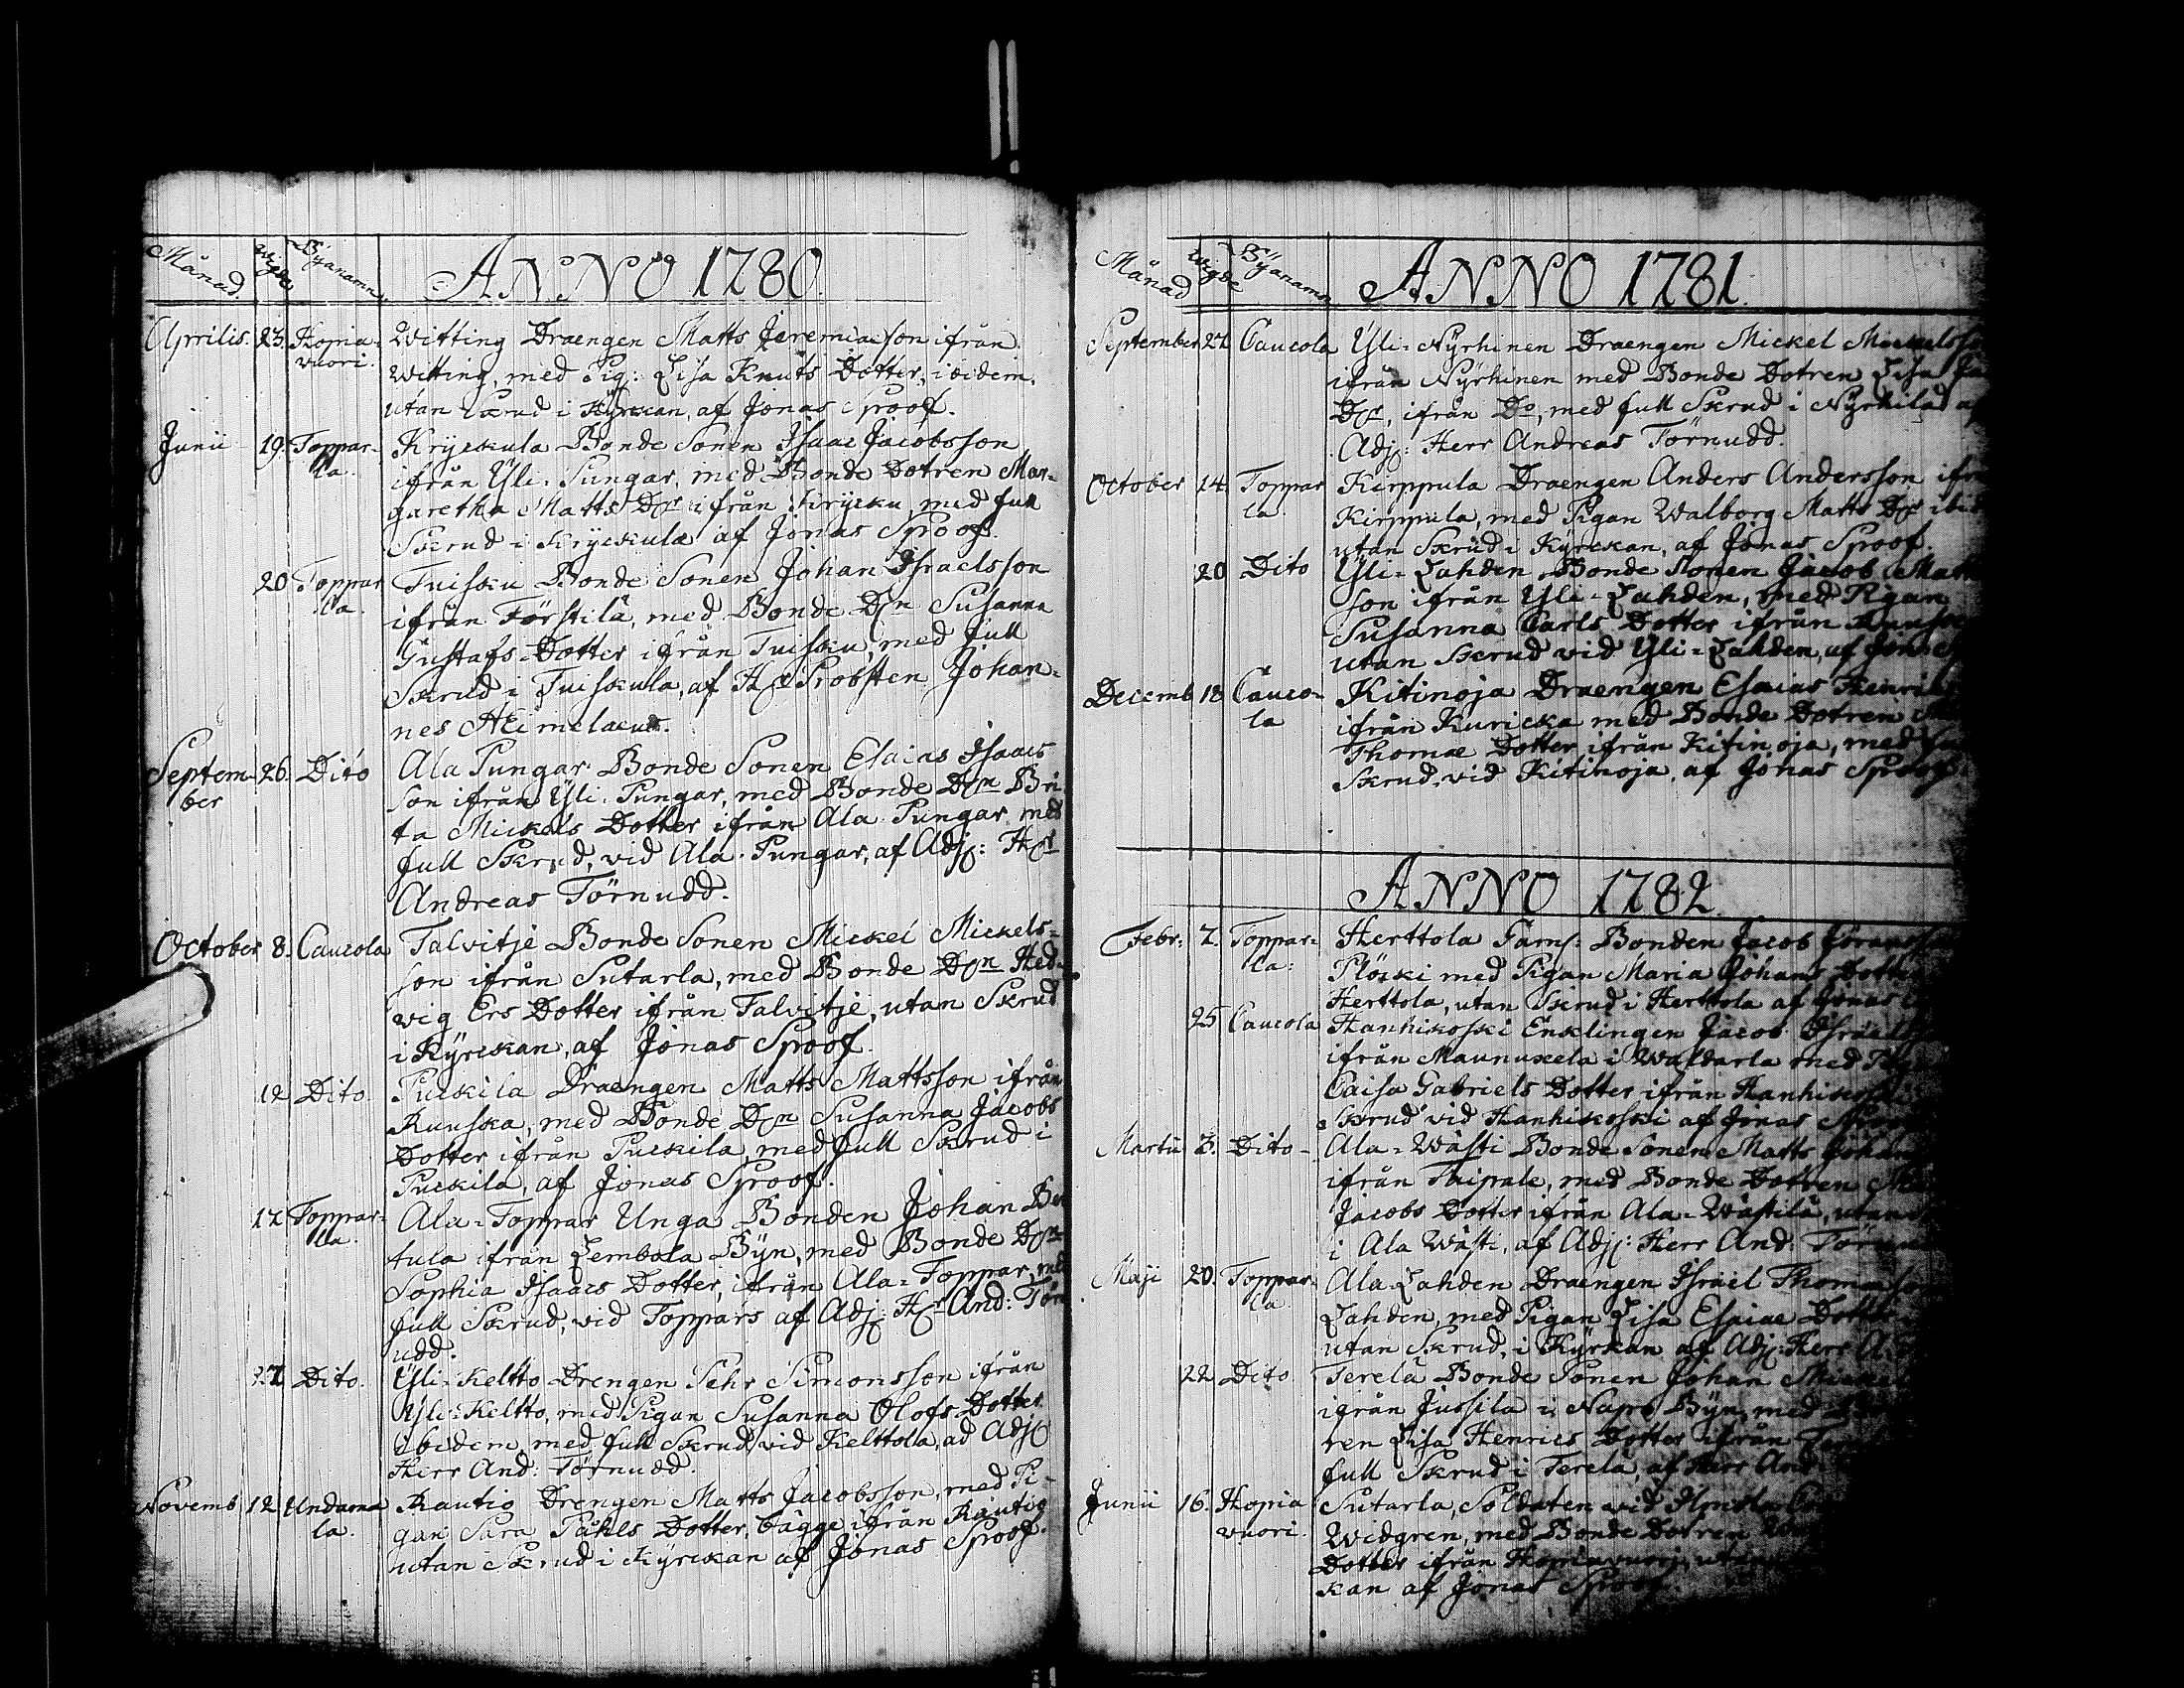 Månad. wigde Byanamn. ANNO 1780.
Aprilis. 23. Hopia- Witting Draengen Matts Jeremiaeson ifrån
vuori. Witting, med Pig: Lisa Knuts Dotter, ibidem,
utan Skrud i Kyrckan, af Jonas Sproof.
Junii 19. Toppar- Kryckula Bonde Sonen Isaac Jacobsson
la. ifrån Yli-Pungar, med Bonde Dotren Mar-
garetha Matts Dr ifrån Krycku, med full
Skrud i Kryckula af Jonas Sproof.
20 Toppar Tuisku Bonde Sonen Johan Israelsson
la. ifrån Förstilä, med Bonde Dn Susanna
Gustafs Dotter ifrån Tuisku, med full
Skrud i Tuiskula, af Hr Probsten Johan-
nes Aeimelaeus.
Septem- 26. Dito Ala Pungar Bonde Sonen Esaias Isaacs
ber son ifrån Yli-Pungar, med Bonde Dn Bri
ta Mickels Dotter ifrån Ala Pungar, med
full Skrud, vid Ala-Pungar, af Adj: Hr
Andreas Törnudd.
October 8. Caucola Talvitje Bonde Sonen Mickel Mickels-
son ifrån Sutarla, med Bonde Dn Hed-
vig Ers Dotter ifrån Talvitje, utan Skrud
i Kyrckan, af Jonas Sproof.
12 Dito. Puckila Draengen Matts Mattsson ifrån
Ruuska, med Bonde Dn Susanna Jacobs
Dotter ifrån Puckila, med full Skrud i
Puckila, af Jonas Sproof.
17 Toppar- Ala-Toppar Unga Bonden Johan
la. tula ifrån Lembola Byn, med Bonde Dn
Sophia Isaacs Dotter, ifrån Ala-Toppar, med
full Skrud, vid Toppars af Adj: Hr And: Törn
udd.
27 Dito. Yli-Keltto Drengen Pehr Simonsson ifrån
Yli-Keltto, med Pigan Susanna Olofs Dotter
ibidem, med full Skrud, vid Kelttola, ad Adj:
Herr And: Törnudd.
Novemb 12 Undama Rautio Drengen Matts Jacobsson, med Pi-
la. gan Sara Påhls Dotter, bägge ifrån Rautio
utan Skrud i Kyrckan af Jonas Sproof.
Månad wigde Byanamn ANNO 1781.
September 27 Caucola Yli-Nyrhinen Draengen Mickel Mickelsso
ifrån Nyrhinen med Bonde Dotren Lisa
Dr, ifrån Do, med full Skrud i Nyrhilä
Adj: Herr Andreas Törnudd.
October 14 Toppar Kirppula Draengen Anders Andersson ifrå
la. Kirppula, med Pigan Walborg Matts Dr ibid
utan Skrud i Kyrckan, af Jonas Sproof.
20 Dito Yli-Lahden Bonde Sonen Jacob Matts
son ifrån Yli-Lahden, med Pigan
Susanna Carls Dotter ifrån
utan Skrud vid Yli-Lahden, af
Decemb 18 Cauco- Kitinoja Draengen Esaias Henrik
la ifrån Kuricka med Bonde Dotren
Thomae Dotter ifrån Kitinoja, med
Skrud, vid Kitinoja, af Jonas Sproof
ANNO 1782.
Febr: 7. Toppar- Herttola Bonden Jacob
la: Plöski med Pigan Maria Johans Dotter
Herttola, utan Skrud i Herttola af Jonas
25 Caucola Hanhikoski Encklingen Jacob
ifrån Maunuxela i Waldarla med
Caisa Gabriels Dotter ifrån
Skrud vid Hanhikoski af Jonas
Martii 3. Dito- Ala-Wästi Bonde Sonen Matts Johan
ifrån Taipale, med Bonde Dotren
Jacobs Dotter ifrån Ala-Wästilä, utan
i Ala Wästi, af Adj: Herr And:
Maji 20. Toppar- Ala Lahden Draengen Israel
la Lahden, med Pigan Lisa Esaiae Dotter
utan Skrud, i Kyrkan af Adj: Herr A
22 Dito Terela Bonde Sonen Johan
ifrån Jussila i Napo Byn, med
ren Lisa Henrics Dotter ifrån
full Skrud i Terela, af Herr And:
Junii 16. Hopia Sutarla, Soldaten vid
vuori. Widgren, med Bonde Dotren
Dotter ifrån Hopiavuori, utan
kan af Jonas Sproof